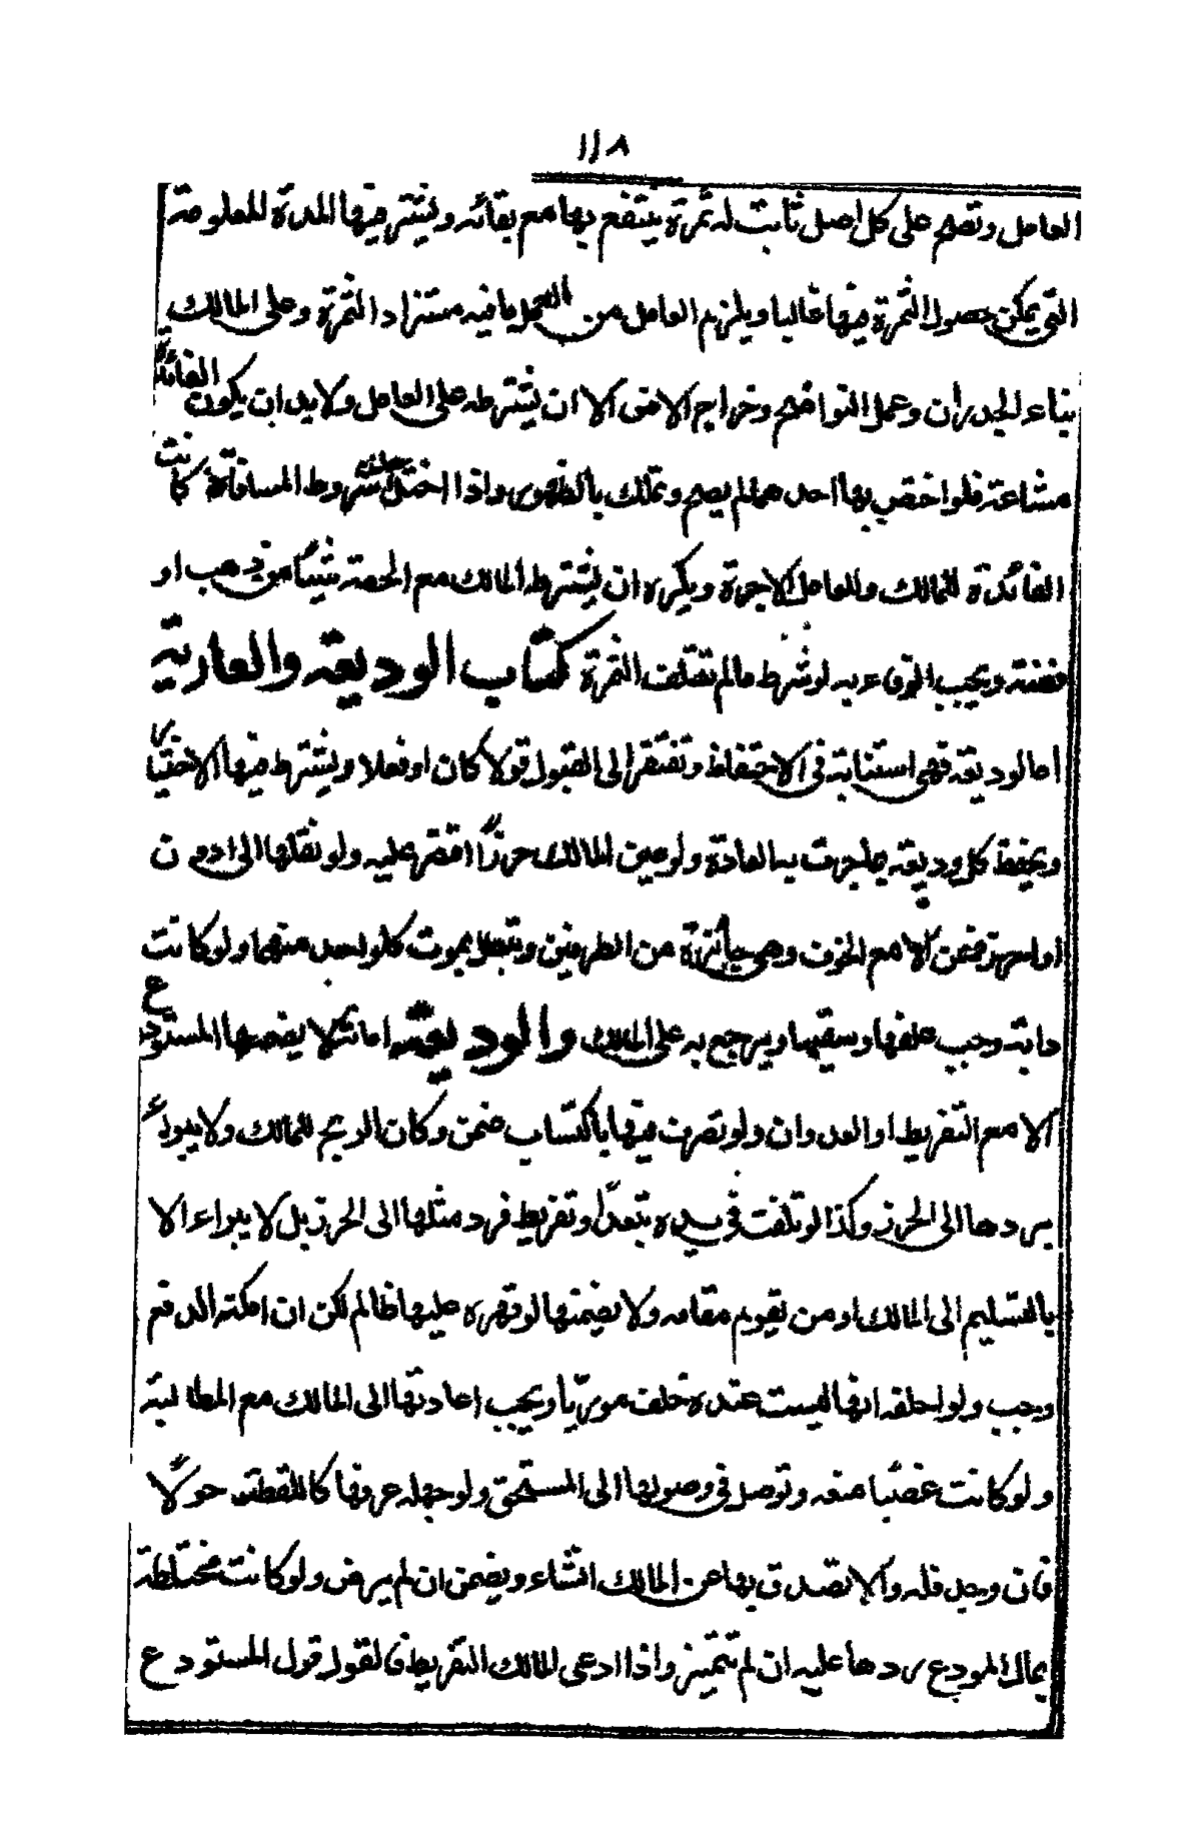 ١١٨
العامل وتصح على كل اصل ثابت له ثمرة ينتفع بها مع بقائه ويشترط فيها المدة المعلومة
التي يمكن حصول الثمرة فيها غالبا ويلزم العامل من العمل ما فيه مستزاد الثمرة وعلى المالك
بناء الجدران وعمل النواضح وخراج الارض الا ان يشترطه على العامل ولابد ان يكون الفائدة
مشاعة فلو اختص بها احدهما لم يصح وتملك بالظهور واذا اختل شروط المساقاة كانت
الفائدة للمالك وللعامل الاجرة ويكره ان يشترط المالك مع الحصة شيئا من ذهب او
فضة ويجب الوفاء به لو شرط مالم تتلف الثمرة كتاب الوديعة والعارية
اما الوديعة فهي استنابة في الاحتفاظ وتفتقر الى القبول قولا كان او فعلا ويشترط فيها الاختيار
ويحفظ كل وديعة بما جرت به العادة ولو عين المالك حرزاً اقتصر عليه ولو نقلها الى ادون
او احرز ضمن الا مع الخوف وهي جائزة من الطرفين وتبطل بموت كل واحد منهما ولو كانت
دابة وجب علفها وسقيها ويرجع به على المالك والوديعة امانة لا يضمنها المستودع
الا مع التفريط او العدوان ولو تصرف فيها باكتساب ضمن وكان الربح للمالك ولا يبرء
بردها الى الحرز وكذا لو تلفت في يده بتعد او تفريط فرد مثلها الى الحرز بل لا يبراء الا
بالتسليم الى المالك او من يقوم مقامه ولا يضمنها لو قهره عليها ظالم لكن ان امكنه الدفع
وجب ولو احلفه انها ليست عنده حلف موريا ويجب اعادتها الى المالك مع المطالبة
ولو كانت غصبا منعه وتوصل في وصولها الى المستحق ولو جهله عرفها كاللقطة حولا
فان وجد فله والا تصدق بها عن المالك انشاء ويضمن ان لم يرض ولو كانت مختلطة
بمال المودع ردها عليه ان لم تتميز واذا ادعى المالك التفريط فالقول قول المستودع